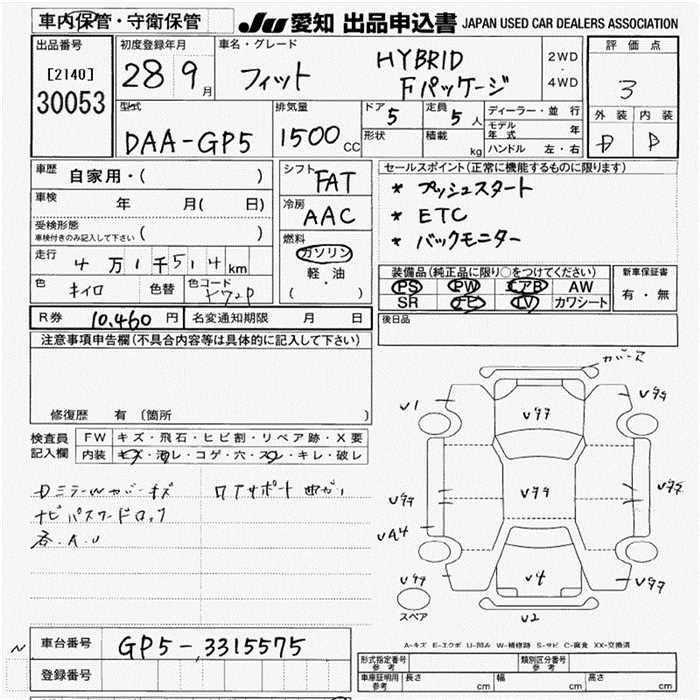 車内保管・守衛保管
JU 愛知 出品申込書 JAPAN USED CAR DEALERS ASSOCIATION
出品番号
[2140]
30053
初度登録年月
28 9月
車名・グレード
フィット HYBRID
Fパッケージ
2WD
・
4WD
評価点
3
外装 内装
D D
型式
DAA-GP5
排気量
1500 CC
ドア 5
定員 5人
形状
積載 kg
ディーラー・並行
モデル年式 年
ハンドル 左・右
車歴
自家用・( )
車検
年 月( 日)
受検形態
車検付きのみ記入して下さい ( )
走行
4万1千514km
色 キイロ 色替 色コード Y72P
シフト
FAT
冷房
AAC
燃料
ガソリン
・
軽・油
( )
セールスポイント(正常に機能するものに限ります)
* プッシュスタート
* ETC
* バックモニター
装備品(純正品に限り○をつけてください)
PS PW エアB AW
SR ナビ TV カワシート
新車保証書
有・無
R券 10,460円 名変通知期限 月 日
後日品
注意事項申告欄(不具合内容等は具体的に記入して下さい)
修復歴 有(箇所 )
検査員
記入欄
FW キズ・飛石・ヒビ割・リペア跡・X要
内装 キズ・汚レ・コゲ・穴・スレ・キレ・破レ
Dミラーwカバーキズ
ナビパスワードロック
各.A.U
カバーズ
U1
U77
U77
U4
U2
スペア
A-キズ E-エクボ U-凹み W-補修跡 S-サビ C-腐食 XX-交換済
車台番号 GP5-3315575
登録番号
形式指定番号
参考
類別区分番号
参考
車庫証明用
参考
長さ cm 幅 cm 高さ cm